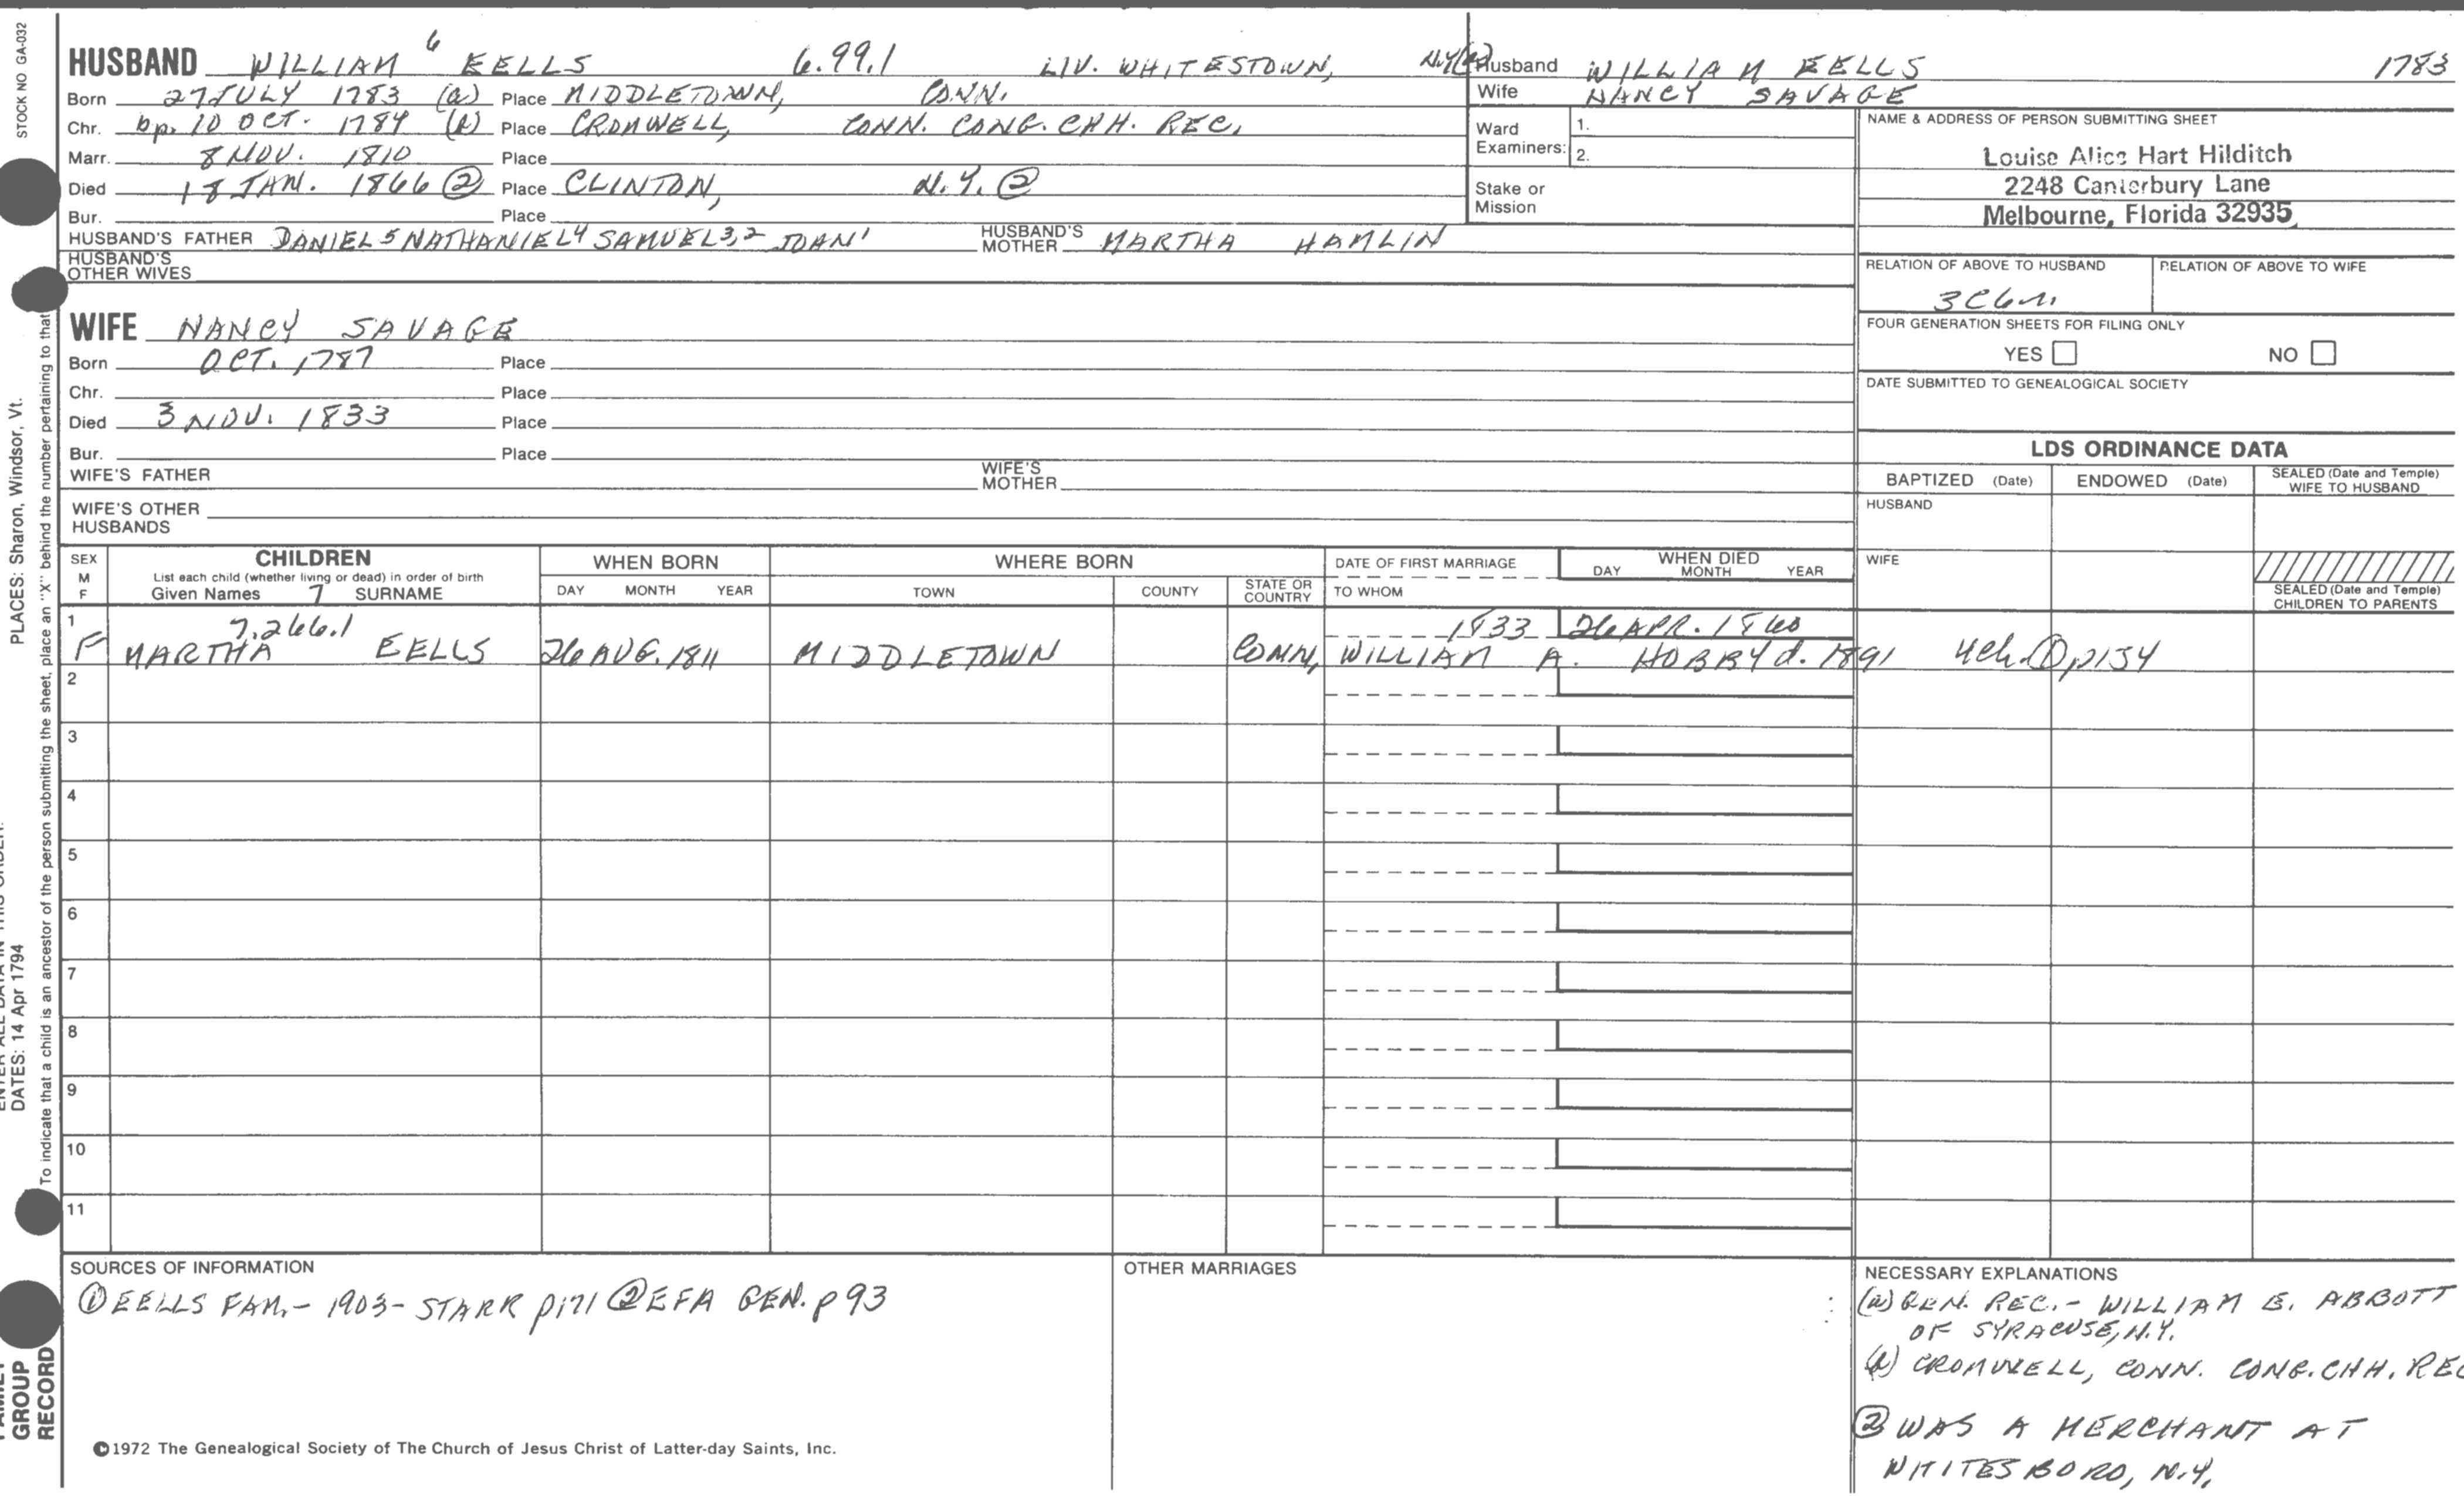 STOCK NO GA-032
HUSBAND WILLIAM 6 EELLS 6.99.1 LIV. WHITESTOWN, N.Y.
Born 27 JULY 1783 (a) Place MIDDLETOWN, CONN.
Chr. bp. 10 OCT. 1784 (b) Place CROMWELL, CONN. CONG. CHH. REC.
Marr. 8 NOV. 1810 Place
Died 18 JAN. 1866 ② Place CLINTON, N.Y. ②
Bur. Place
HUSBAND'S FATHER DANIEL5 NATHANIEL4 SAMUEL3,2 JOHN1 HUSBAND'S MOTHER MARTHA HAMLIN
HUSBAND'S OTHER WIVES
Husband WILLIAM EELLS 1783
Wife NANCY SAVAGE
Ward Examiners: 1.
2.
Stake or Mission
NAME & ADDRESS OF PERSON SUBMITTING SHEET
Louise Alice Hart Hilditch
2248 Canterbury Lane
Melbourne, Florida 32935
RELATION OF ABOVE TO HUSBAND RELATION OF ABOVE TO WIFE
3C6r.
FOUR GENERATION SHEETS FOR FILING ONLY
YES NO
DATE SUBMITTED TO GENEALOGICAL SOCIETY
WIFE NANCY SAVAGE
Born OCT. 1787 Place
Chr. Place
Died 3 NOV. 1833 Place
Bur. Place
WIFE'S FATHER WIFE'S MOTHER
WIFE'S OTHER HUSBANDS
LDS ORDINANCE DATA
BAPTIZED (Date) ENDOWED (Date) SEALED (Date and Temple) WIFE TO HUSBAND
HUSBAND
WIFE
SEALED (Date and Temple) CHILDREN TO PARENTS
SEX M F
CHILDREN
List each child (whether living or dead) in order of birth
Given Names 7 SURNAME
WHEN BORN
DAY MONTH YEAR
WHERE BORN
TOWN COUNTY STATE OR COUNTRY
DATE OF FIRST MARRIAGE
TO WHOM
WHEN DIED
DAY MONTH YEAR
1 7.266.1 1833 26 APR. 1860
F MARTHA EELLS 26 AUG. 1811 MIDDLETOWN CONN. WILLIAM A. HOBBY d. 1891 4ch. ① p134
2
3
4
5
6
7
8
9
10
11
SOURCES OF INFORMATION
① EELLS FAM. - 1903 - STARR p171 ② EFA GEN. p 93
OTHER MARRIAGES
NECESSARY EXPLANATIONS
(a) GEN. REC. - WILLIAM E. ABBOTT
OF SYRACUSE, N.Y.
(b) CROMWELL, CONN. CONG. CHH. REC
② WAS A MERCHANT AT
WHITESBORO, N.Y.
©1972 The Genealogical Society of The Church of Jesus Christ of Latter-day Saints, Inc.
PLACES: Sharon, Windsor, Vt.
DATES: 14 Apr 1794
To indicate that a child is an ancestor of the person submitting the sheet, place an "X" behind the number pertaining to that
GROUP
RECORD